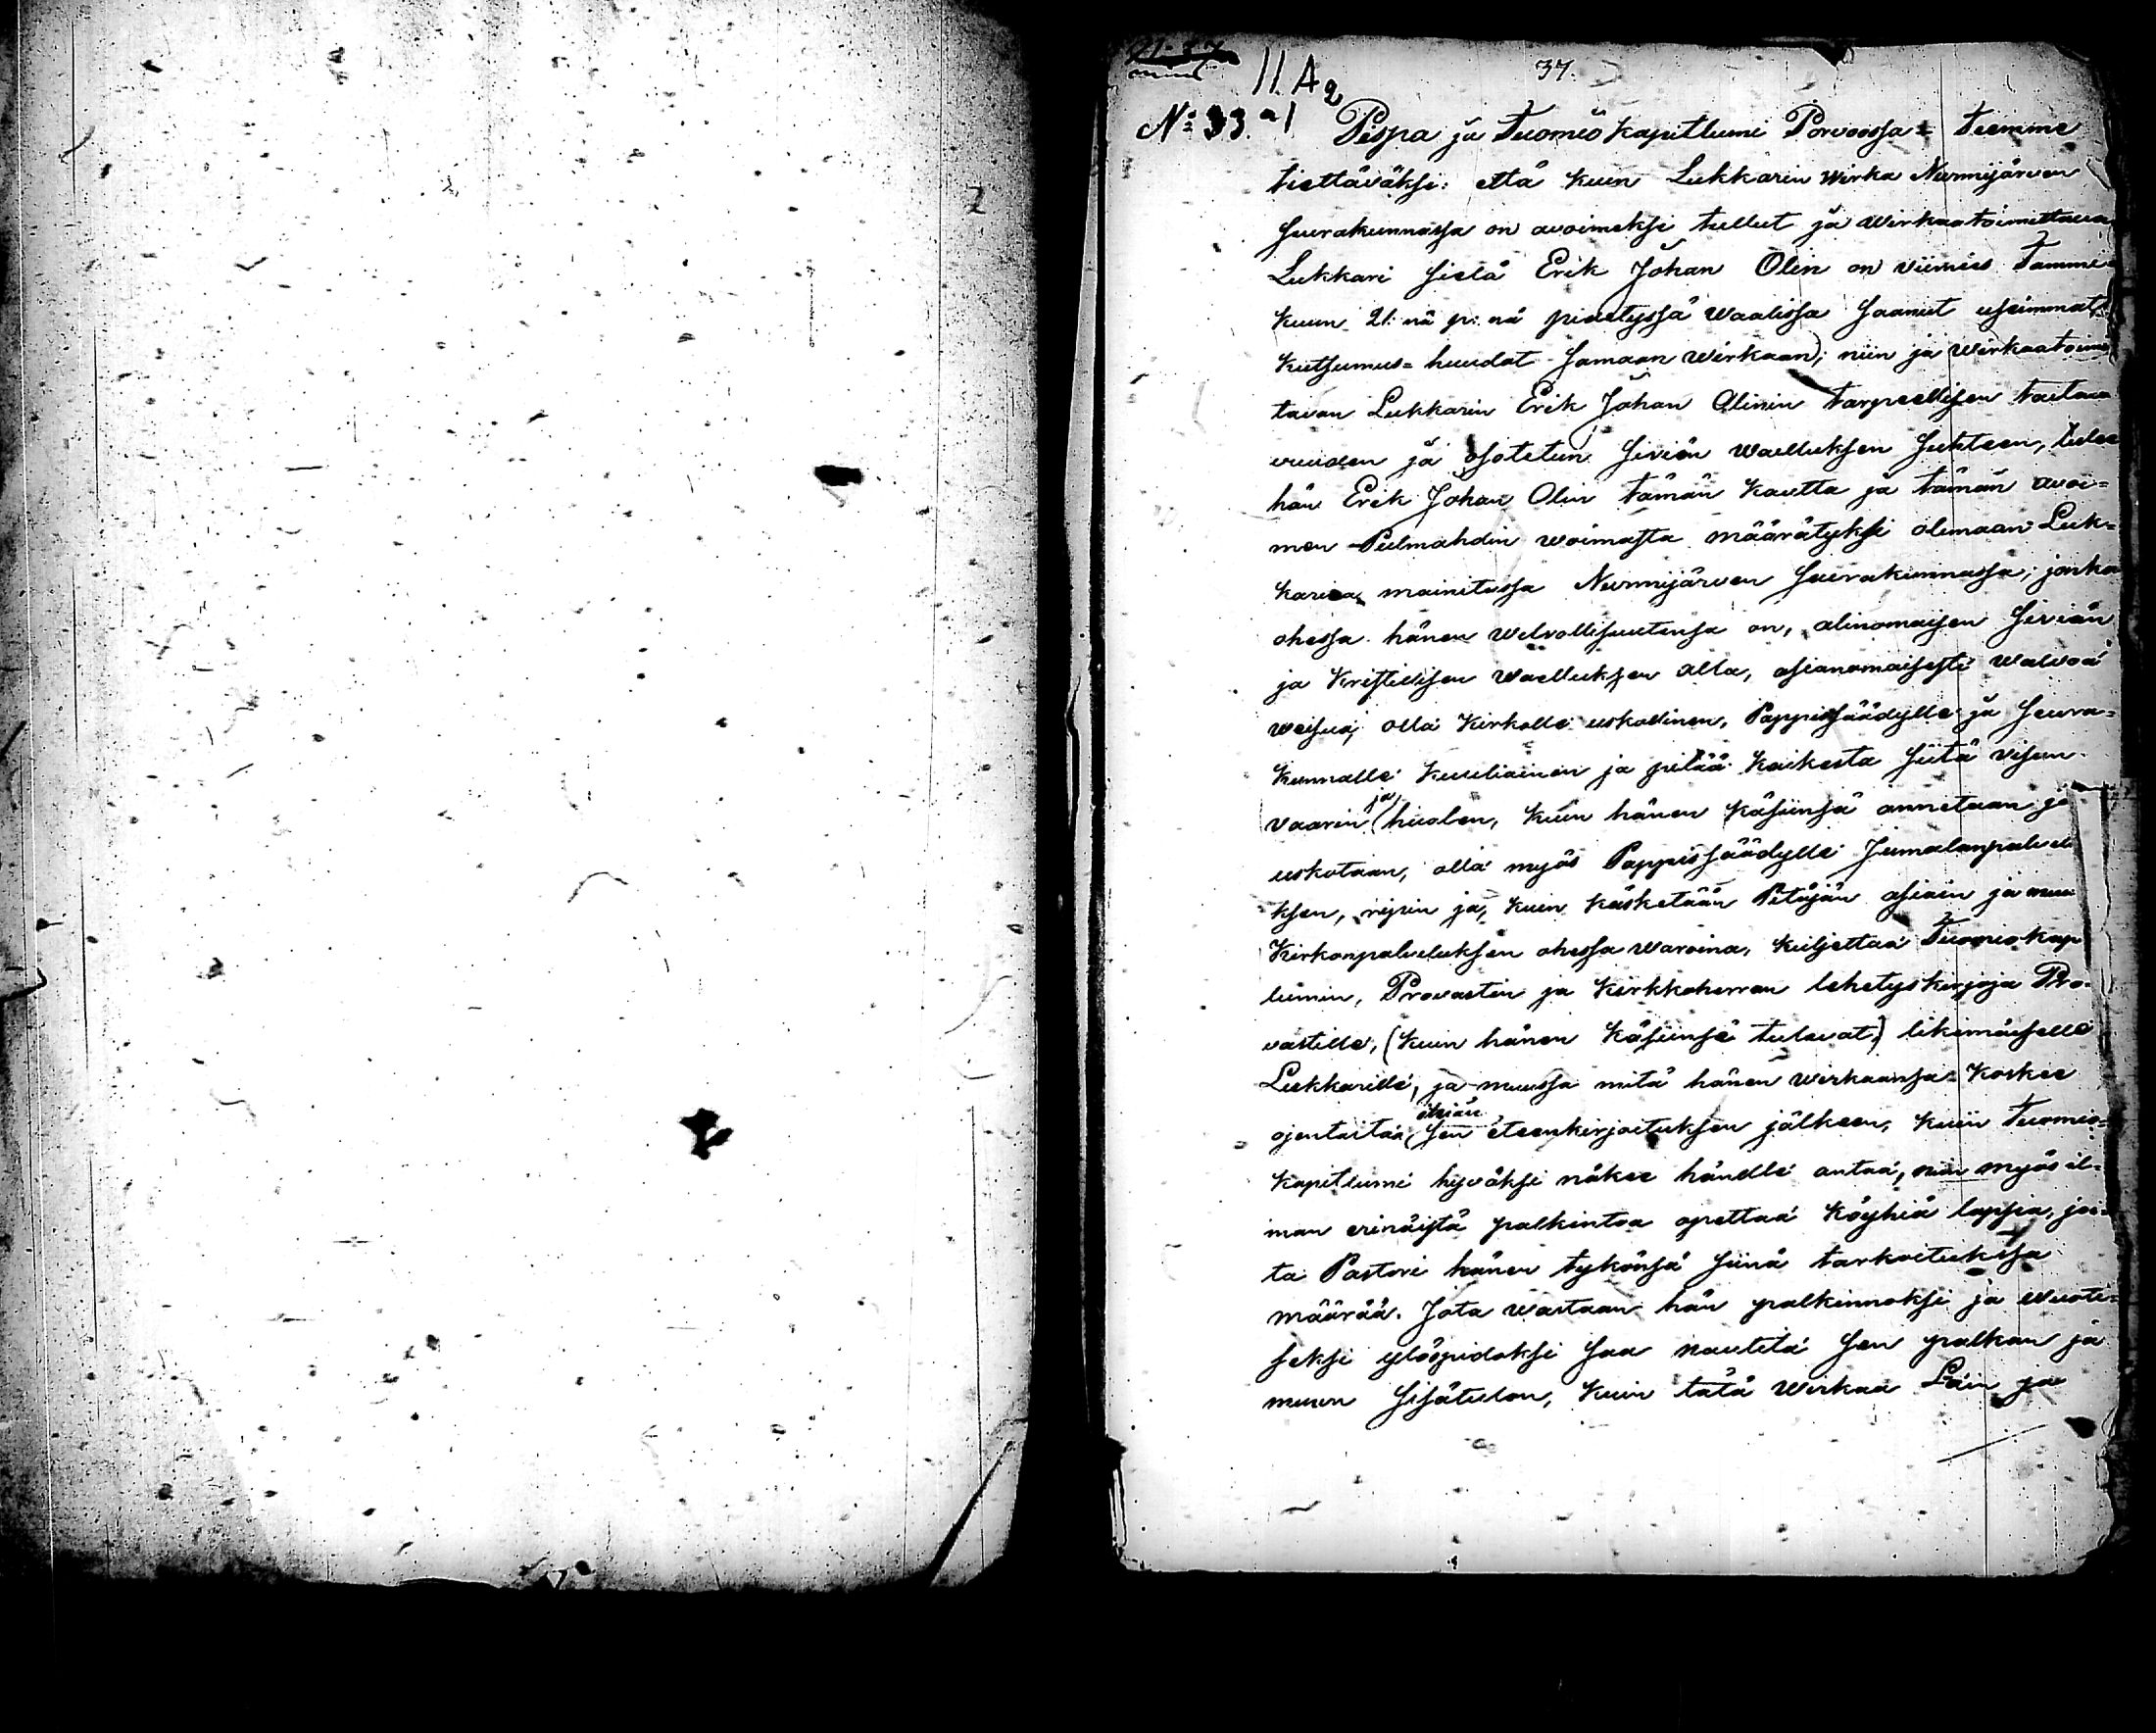 37.
11. A 2
No 33. a/
Pispa ja Tuomiokapitlumi Porvoossa = Teemme
tiettäväksi: että kuin Lukkarin wirka Nurmijärven
Seurakunnassa on avoimeksi tullut ja wirkaatoimittava
Lukkari sielä Erik Johan Olin on viimeis Tammi-
kuun 21:nä p:nä pidetyssä waalissa saanut useimmat
kutsumus=huudat samaan wirkaan; niin ja wirkaatoimi
tavan Lukkarin Erik Johan Olinin tarpeellisen taitava
vuuden ja osotetun siviän waelluksen suhteen, tulee
hän Erik Johan Olin tämän kautta ja tämän avoi=
men Pulmahdin woimasta määrätyksi olemaan Luk=
karina mainitussa Nurmijärven Seurakunnassa; jonka
ohessa hänen welvollisuutensa on, alinomaisen siviän
ja kristillisen waelluksen alla, asianomaisesti walvoa
weisua, olla kirkolle uskollinen, Pappissäädylle ja seura=
kunnalle kuuliainen ja pitää kaikesta siitä visun
vaarin ja huolen, kuin hänen käsiinsä annetaan ja
uskotaan, olla myös Pappissäädylle Jumalanpalvel
ksen, ripin ja, kuin käsketään Pitäjän asiain ja muu
Kirkonpalveluksen ohessa waroina, kuljettaa Tuomiokap
lumin, Provastin ja Kirkkoherran lehetyskirjoja Pro-
vastille, (kuin hänen käsiinsä tulevat,) likimäiselle
Lukkarille, ja muussa mitä hänen wirkaansa koskee
ojentaitaa itsiän sen eteenkirjoituksen jälkeen, kuin Tuomio=
kapitlumi hyväksi näkee hänelle antaa, niin myös il=
man erinäistä palkintoa opettaa köyhiä lapsia, joi=
ta Pastori hänen tykönsä siinä tarkoituksessa
määrää. Jota vastaan hän palkinnoksi ja wuoti=
seksi ylöspidoksi saa nautita sen palkan ja
muun sisätulon, kuin tätä wirkaa Lain ja